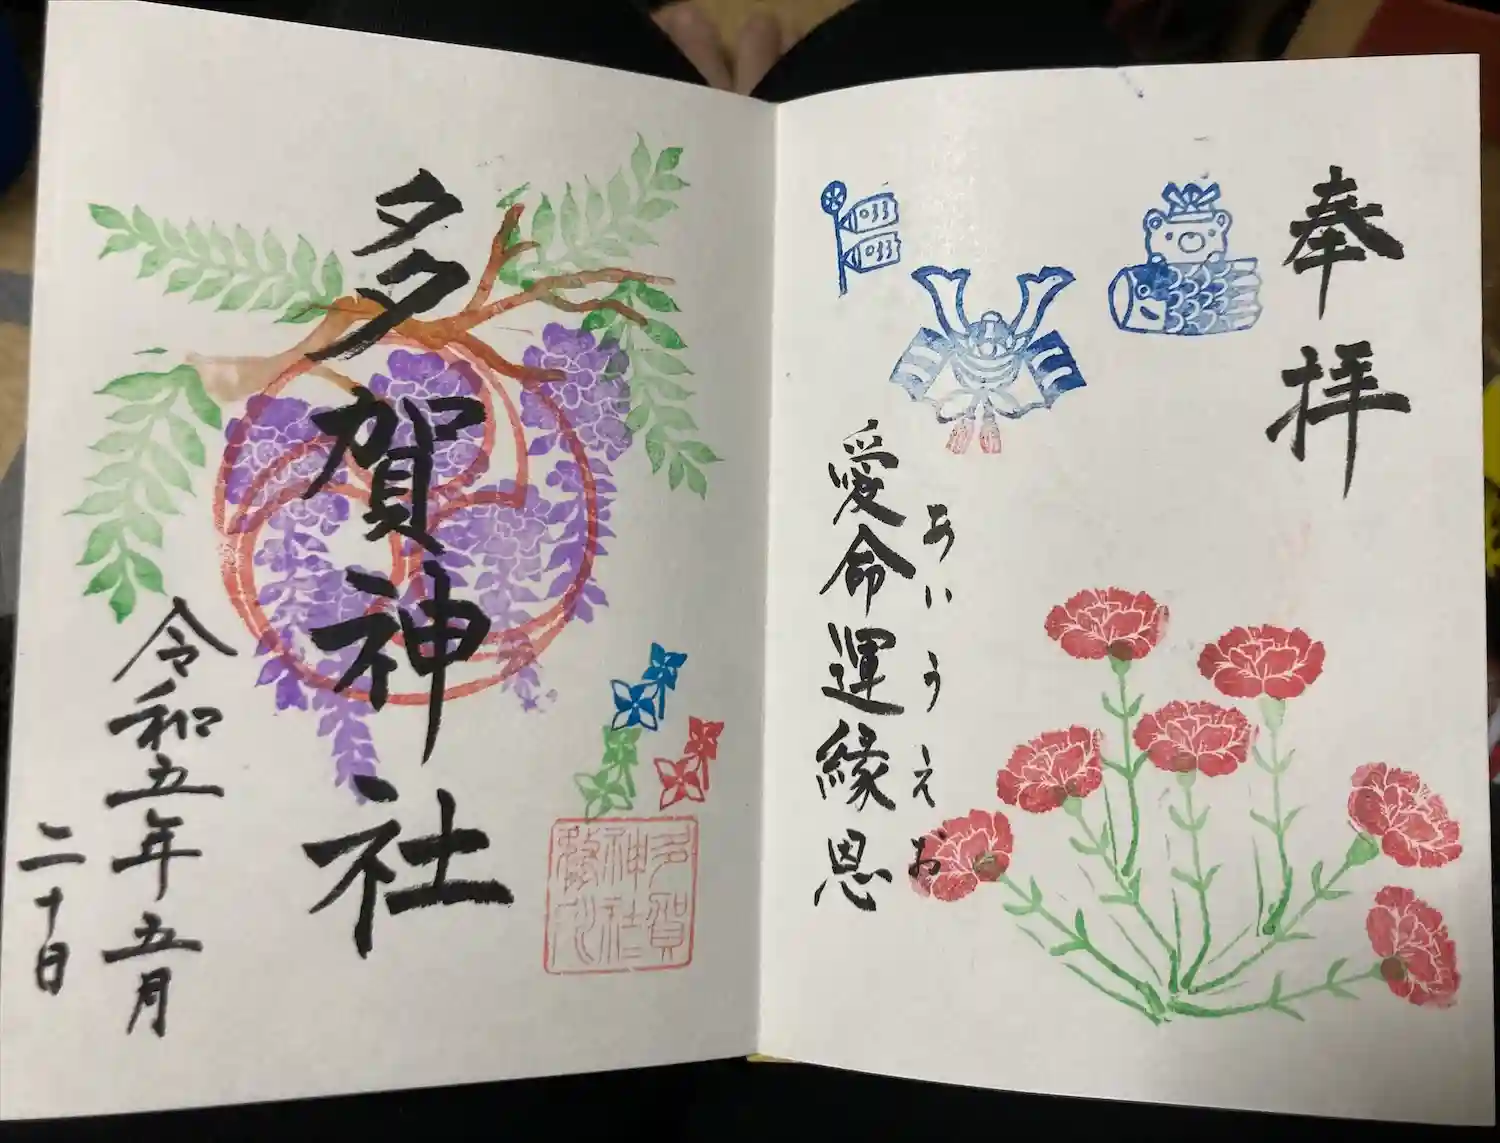 奉拝
あいうえお
愛命運縁恩
033
033
多賀神社
多賀
神社
令和五年五月
二十日